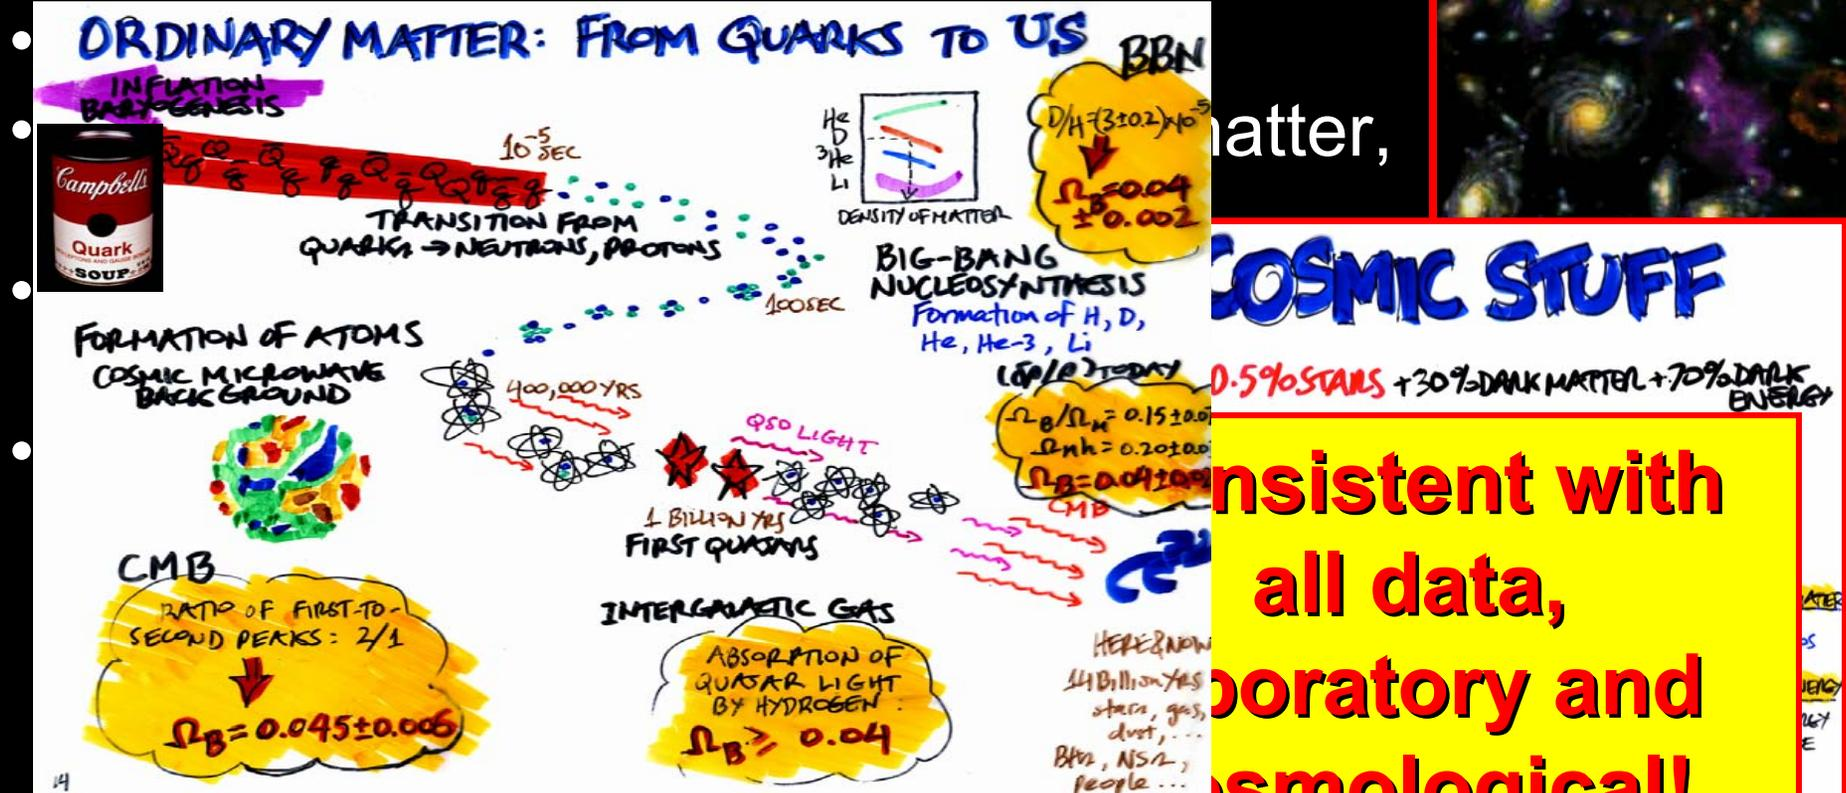 ORDINARY MATTER: FROM QUARKS TO US
INFLATION
BARYOGENESIS
Campbell's
Quark
SOUP
10⁻⁵ SEC
TRANSITION FROM
QUARKS → NEUTRONS, PROTONS
He
D
³He
Li
DENSITY OF MATTER
BBN
D/H=(3±0.2)×10⁻⁵
Ω_B=0.04
±0.002
BIG-BANG
NUCLEOSYNTHESIS
Formation of H, D,
He, He-3, Li
100 SEC
FORMATION OF ATOMS
COSMIC MICROWAVE
BACKGROUND
400,000 YRS
QSO LIGHT
1 BILLION YRS
FIRST QUASARS
(δρ/ρ) TODAY
Ω_B/Ω_M = 0.15±0.0
Ωmh = 0.20±0.0
Ω_B=0.04±0.0
CMB
CMB
RATIO OF FIRST-TO-
SECOND PEAKS: 2/1
Ω_B = 0.045±0.006
INTERGALACTIC GAS
ABSORPTION OF
QUASAR LIGHT
BY HYDROGEN:
Ω_B ≥ 0.04
HERE & NOW
14 Billion YRS
stars, gas,
dust, ...
BHs, NSs,
People ...
14
atter,
COSMIC STUFF
0.5% STARS + 30% DARK MATTER + 70% DARK
ENERGY
nsistent with
all data,
boratory and
osmological!